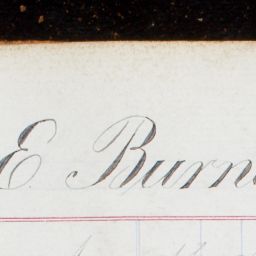 E. Burn